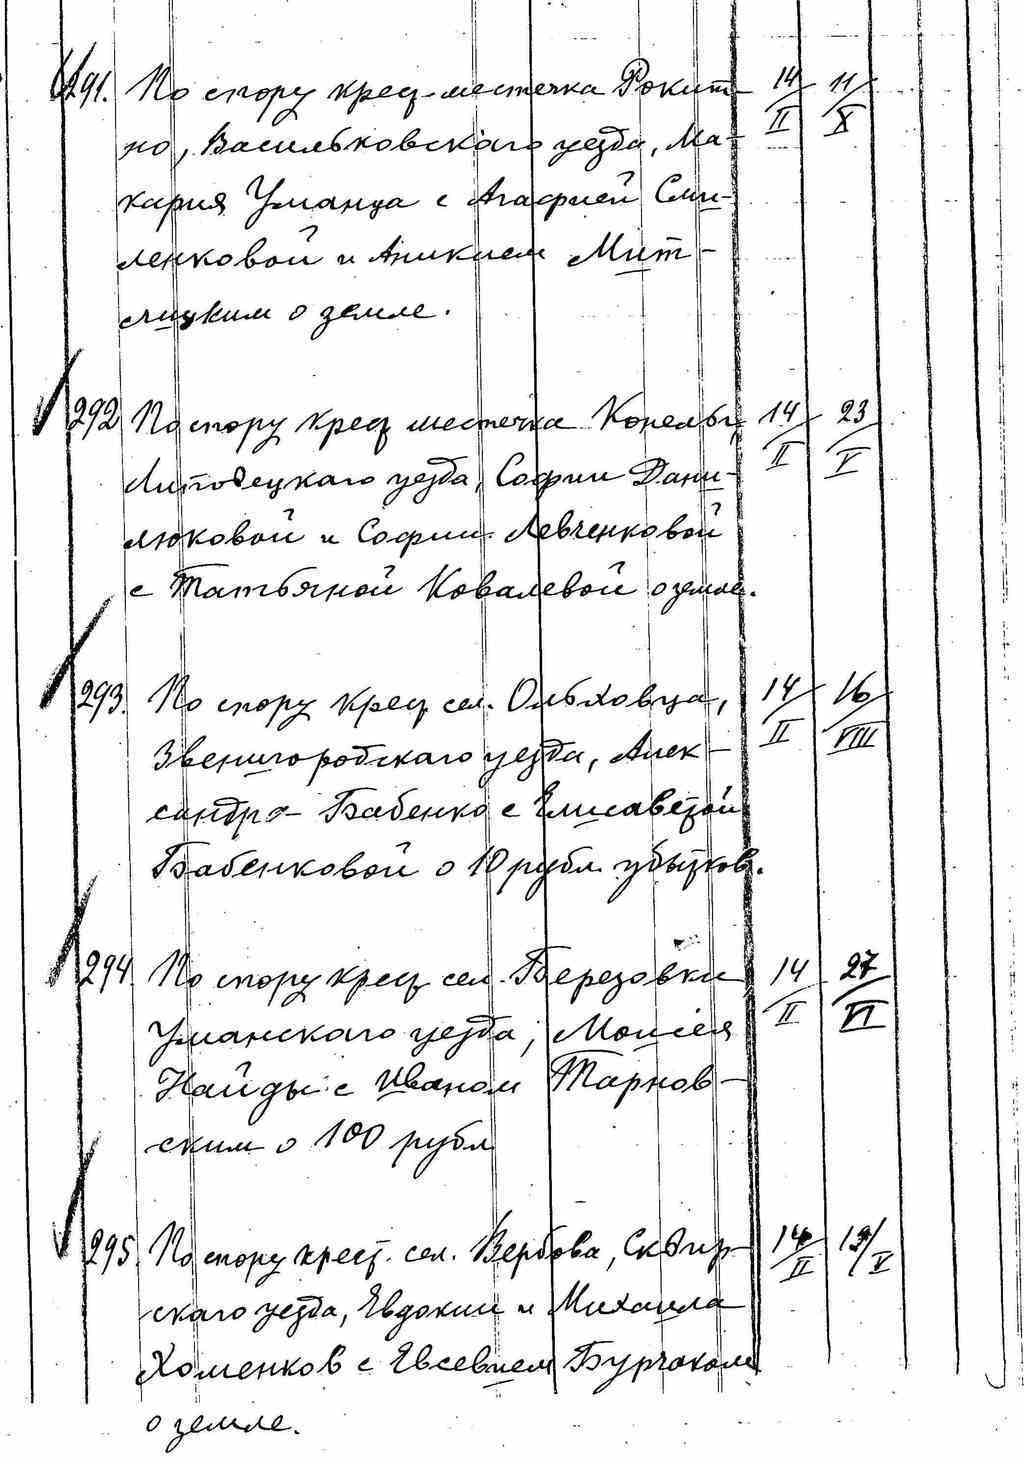 291. По спору крест. местечка Рокит- 14/II 11/X
но, Васильковскаго уезда, Ма-
кария Уманца с Агафией Сми-
ленковой и Аникием Мит-
лицким о земле.
292 По спору крест. местечка Конелы, 14/II 23/V
Липовецкаго уезда, Софии Дани-
люковой и Софии Левченковой
с Татьяной Ковалевой о земле.
293. По спору крест. сел. Ольховца, 14/II 16/VIII
Звенигородскаго уезда, Алек-
сандра Бабенко с Елисаветой
Бабенковой о 10 рубл. убытков.
294. По спору крест. сел. Березовки 14/II 27/VI
Уманскаго уезда, Моисея
Найды с Иваном Тарнов-
ским о 100 рубл
295. По спору крест. сел. Вербова, Сквир- 14/II /V
скаго уезда, Евдокии и Михаила
Хоменков с Евсевием Бурчаком
о земле.